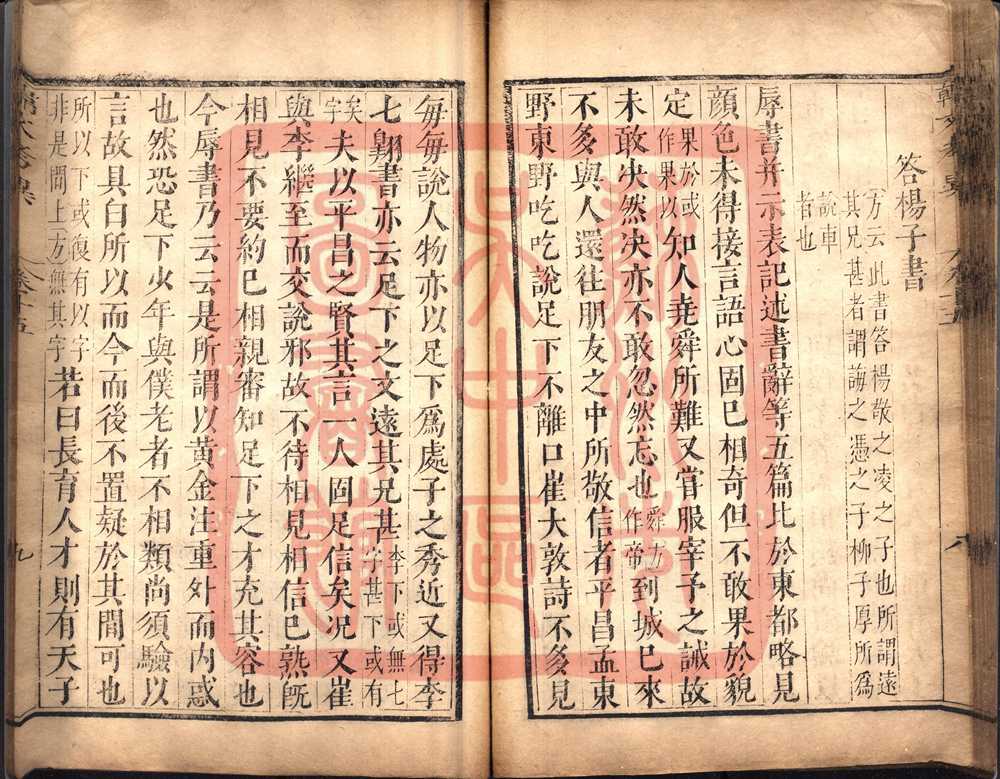 答楊子書
方云此書答楊敬之凌之子也所謂遠
其兄甚者謂誨之憑之子柳子厚所為
說車
者也
辱書并示表記述書辭等五篇比於東都略見
顏色未得接言語心固已相奇但不敢果於貌
定果於或作果以知人堯舜所難又嘗服宰予之誡故
未敢決然決亦不敢忽然忘也舜方作帝到城已來
不多與人還往朋友之中所敬信者平昌孟東
野東野吃吃說足下不離口崔大敦詩不多見
每每說人物亦以足下為處子之秀近又得李
七翺書亦云足下之文遠其兄甚李下或無七字甚下或有
矣字夫以平昌之賢其言一人固足信矣况又崔
與李繼至而交說邪故不待相見相信已熟旣
相見不要約已相親審知足下之才充其容也
今辱書乃云云是所謂以黃金注重外而內惑
也然恐足下少年與僕老者不相類尚須驗以
言故具白所以而今而後不置疑於其間可也
所以下或復有以字非是間上方無其字若曰長育人才則有天子
九